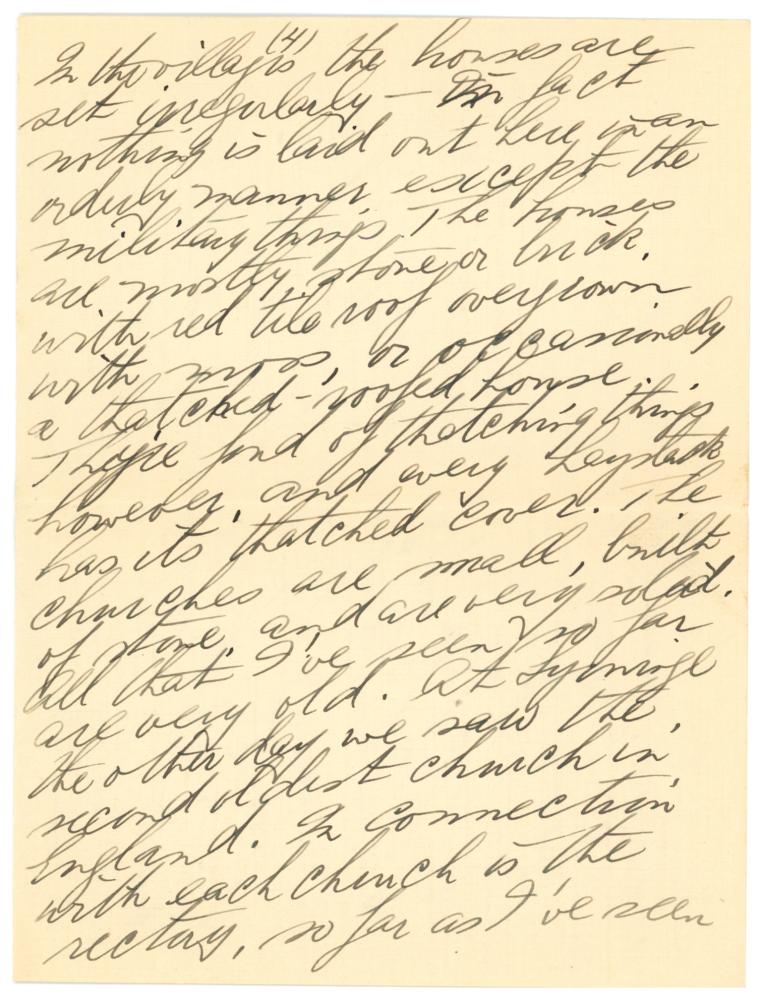 (4)
In the villages the houses are
set irregularly – In fact
nothing is laid out here in an
orderly manner except the
military things. The houses
are mostly stone or brick,
with red tile roof overgrown
with moss, or occasionally
a thatched-roofed house.
They're fond of thatching things
however, and every haystack
has its thatched cover. The
churches are small, built
of stone, and are very solid.
All that I've seen so far
are very old. At Lyminge
the other day we saw the
second oldest church in
England. In connection
with each church is the
rectory, so far as I've seen